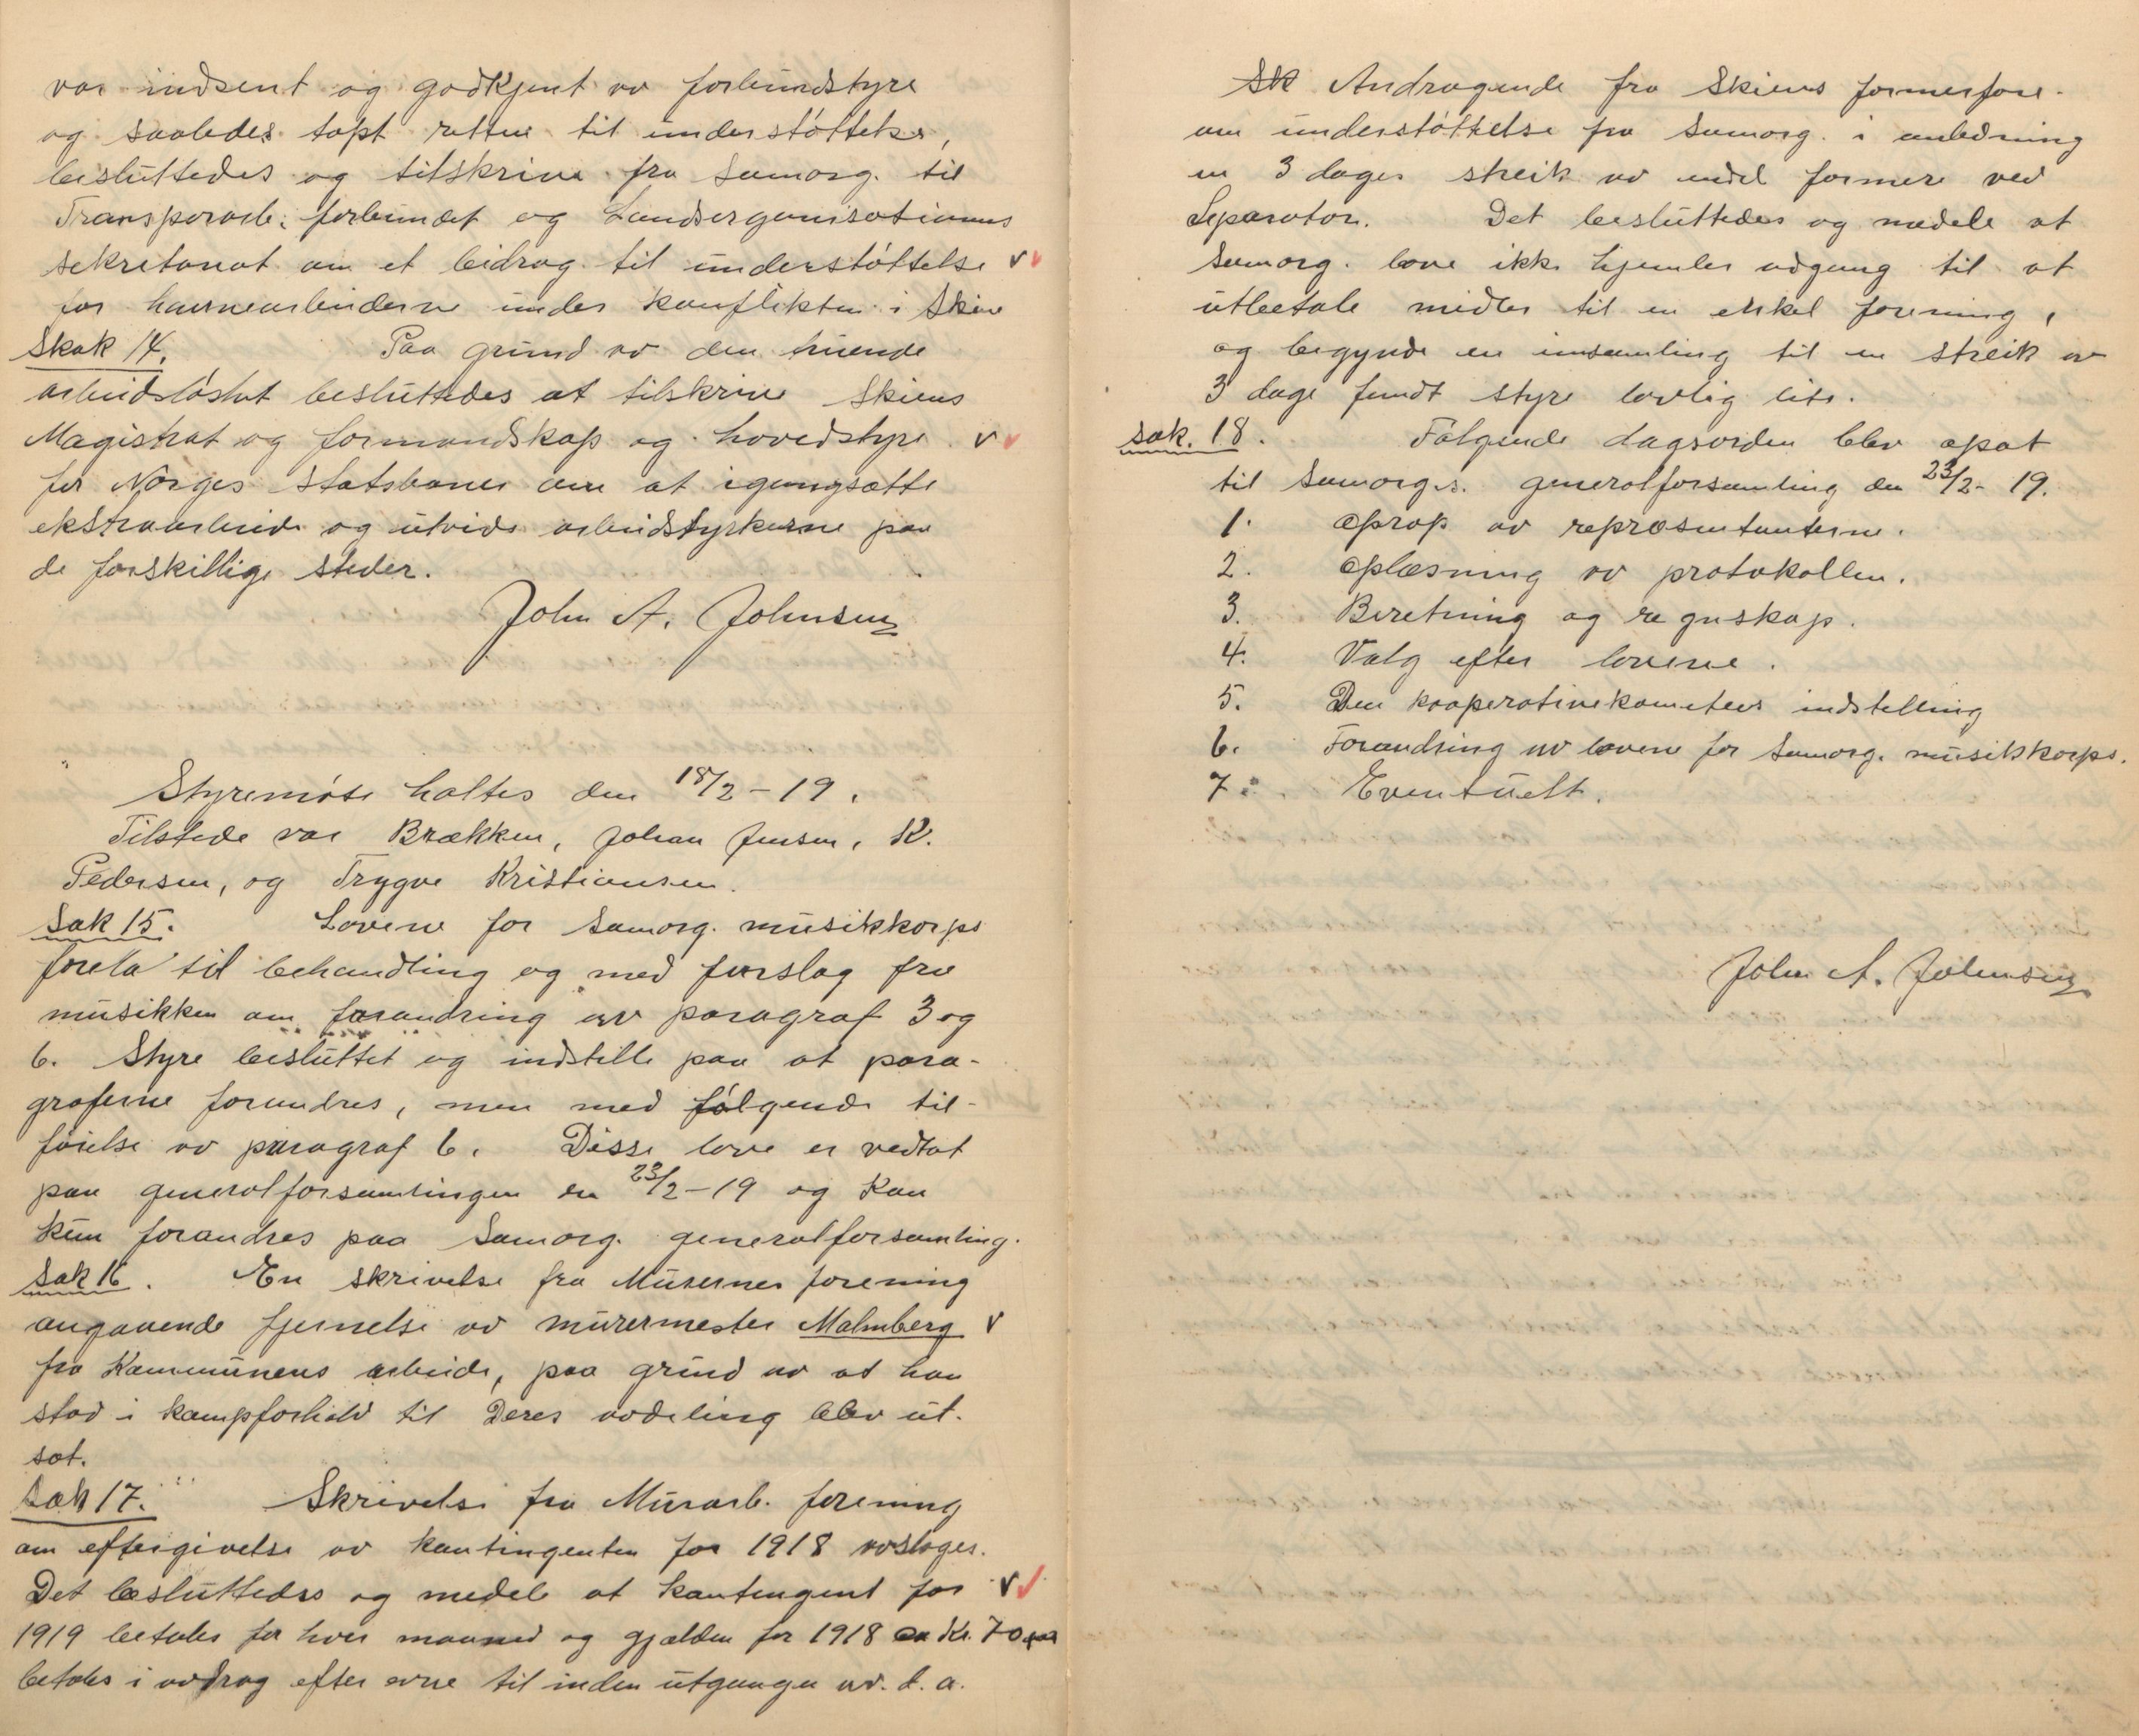 var indsent og godkjent av forbundstyre
og saaledes tapt retten til understøttelse,
besluttedes og tilskrive fra Samorg. til
Transportarb. forbundet og Landsorganisationens
sekretariat om et bidrag til understøttelse
for havnearbeiderne under konflikten i Skien
Skak 14. Paa grund av den truende
arbeidsløshet besluttedes at tilskrive Skiens
Magistrat og formandskap og hovedstyre
for Norges Statsbaner om at igangsætte
ekstraarbeide og utvide arbeidstyrkerne paa
de forskillige steder.
John A. Johnsen
Styremøte holtes den 18/2-19.
Tilstede var Brækken, Johan Jensen, K.
Pedersen, og Trygve Kristiansen.
Sak 15. Lovene for Samorg. musikkorps
foretat til behandling og med forslag fra
musikken om forandring av paragraf 3 og
6. Styre besluttet og indstille paa at para-
graferne forandres, men med følgende til-
føielse av paragraf 6. Disse love er vedtat
paa generalforsamlingen den 23/2-19 og kan
kun forandres paa Samorg. generalforsamling.
Sak 16. En skrivelse fra Murernes forening
angaaende fjernelse av murermester Malmberg
fra Kommunens arbeide, paa grund av at han
stod i kampforhold til Deres avdeling blev ut-
sat.
Sak 17. Skrivelse fra Murarb. forening
om eftergivelse av kontingenten for 1918 avslages.
Det besluttedes og medele at kontingent for
1919 betales for hver maaned og gjælden for 1918 Kr. 70
betales i avdrag efter evne til inden utgangen av. d. a.
Sk Andragende fra Skiens formerfore.
om understøttelse fra Samorg. i anledning
en 3 dages streik av endel formere ved
Separator. Det besluttedes og medele at
Samorg. love ikke hjemler adgang til at
utbetale midler til en enkel forening,
og begynde en insamling til en streik av
3 dage fandt styre lovlig lite.
Sak. 18. Følgende dagsorden blev opsat
til Samorgs. generalforsamling den 23/2-19.
1. Oprop av repræsentanterne.
2. Oplæsning av protokollen.
3. Beretning og regnskap.
4. Valg efter lovene.
5. Den kooperativekomiteers indstelling
6. Forandring av lovene for Samorg. musikkorps.
7. Eventuelt.
John A. Johnsen